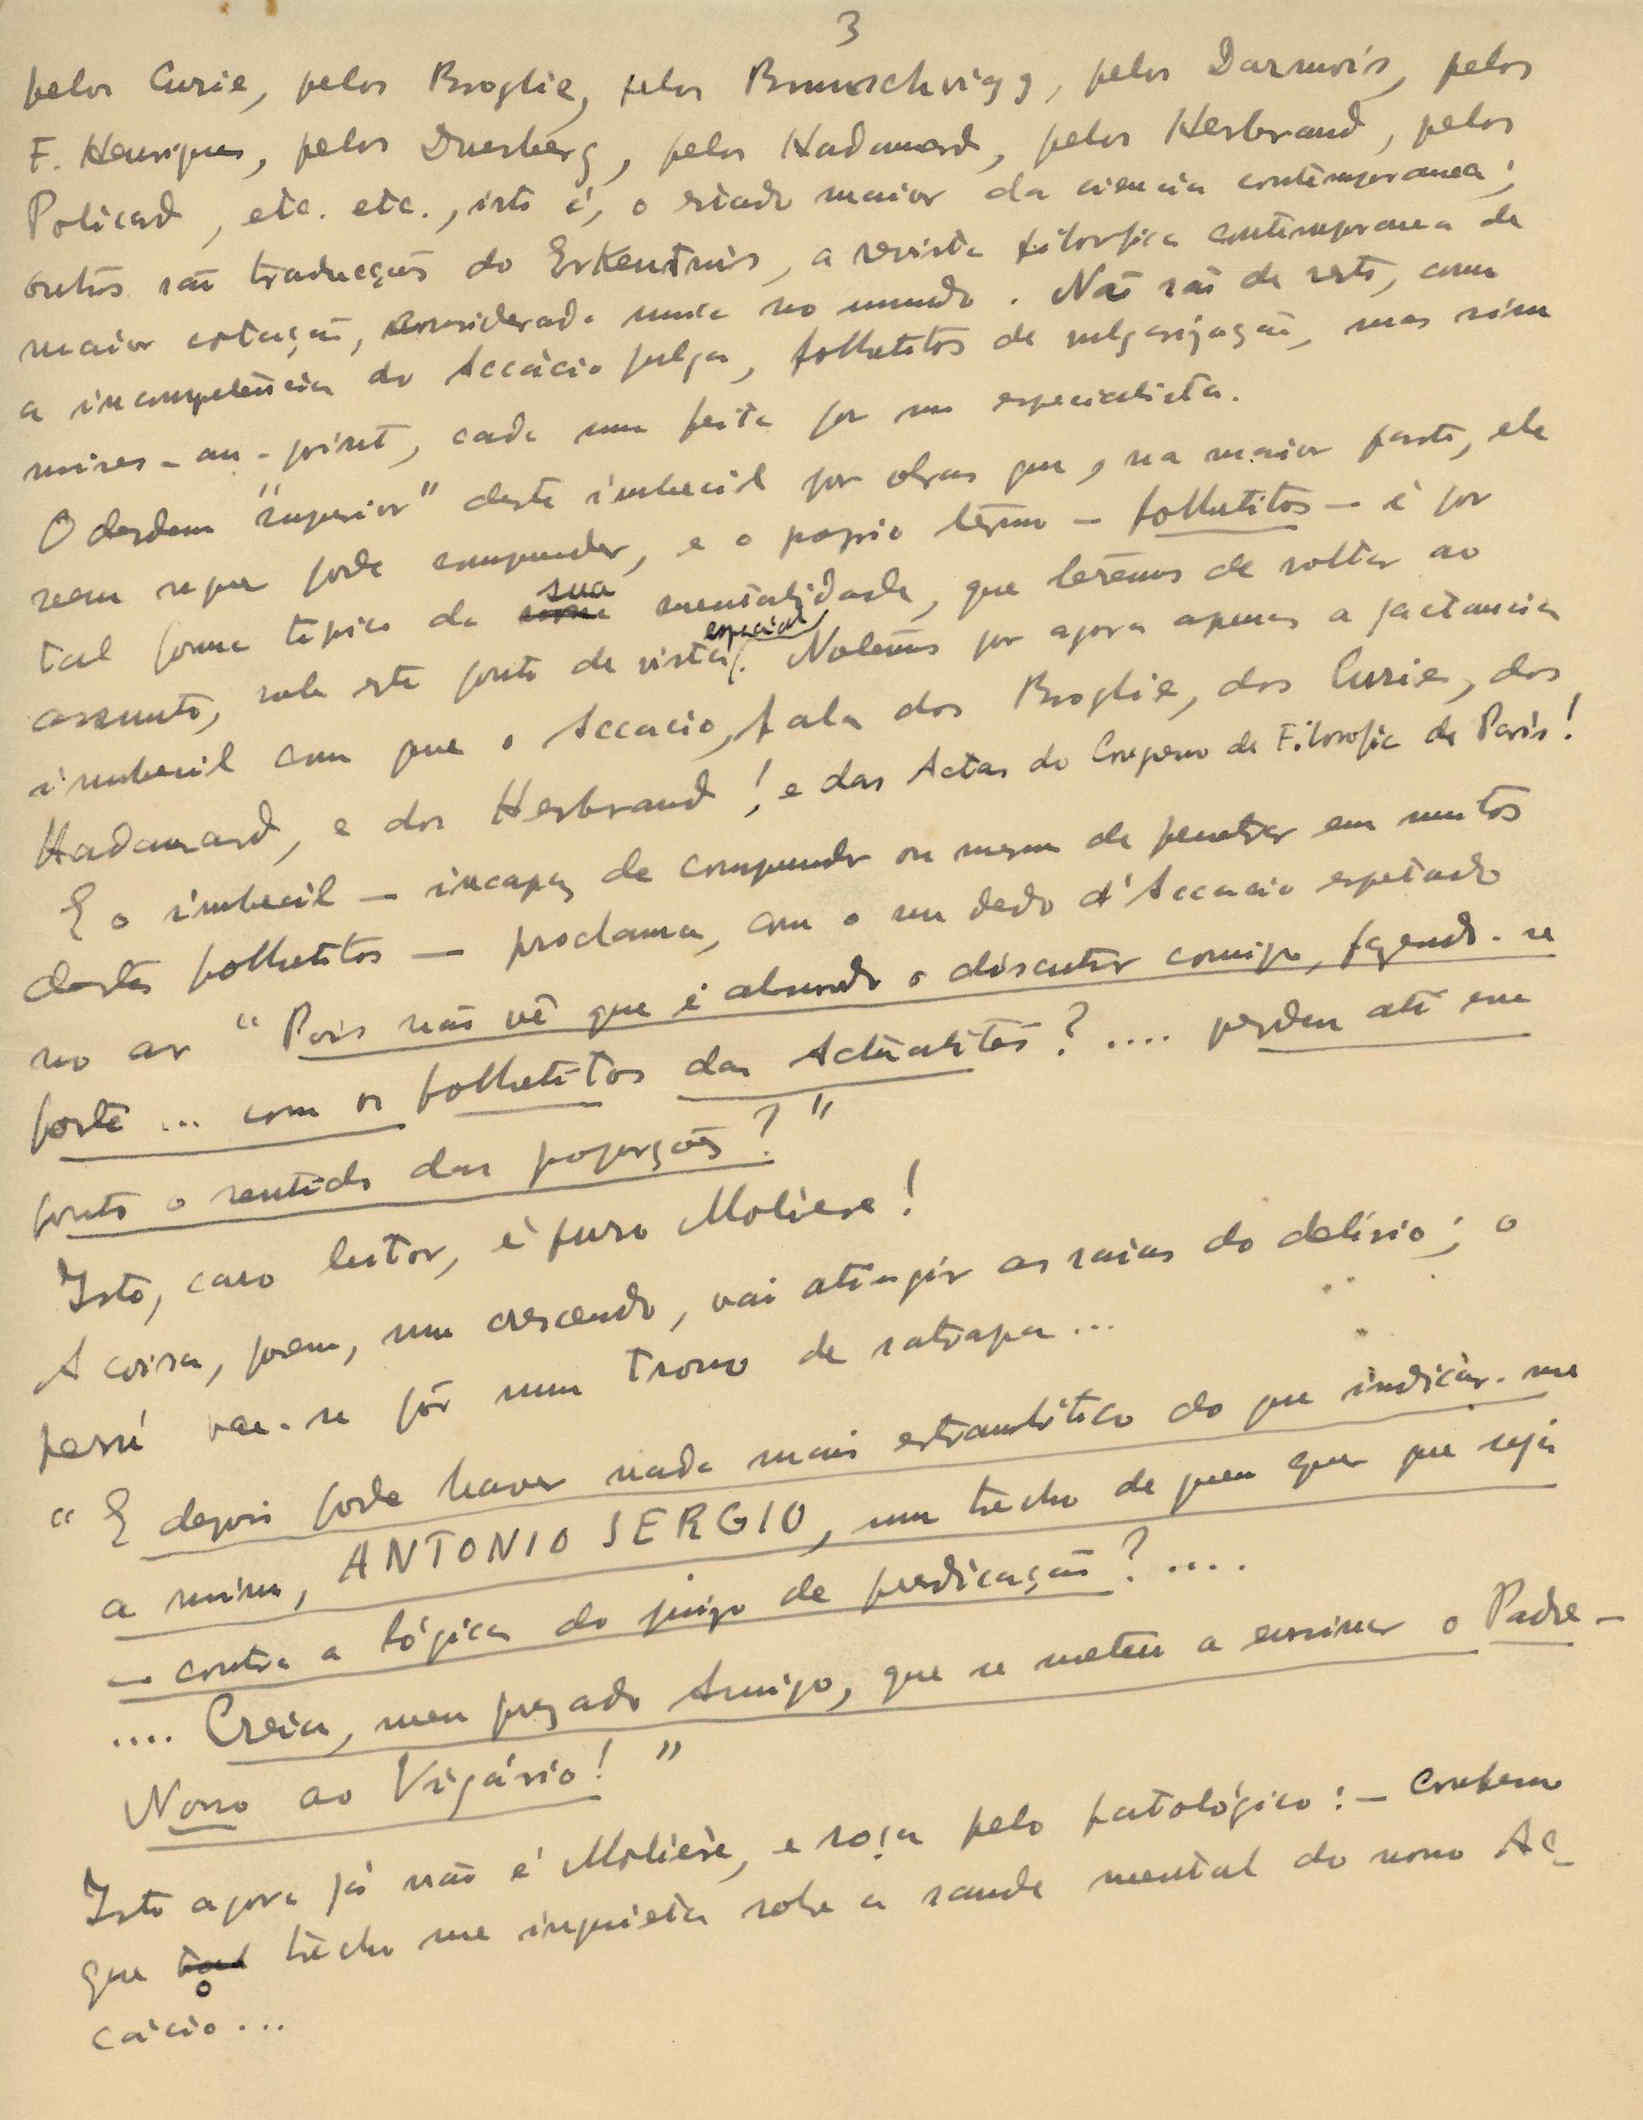 3
pelos Curie, pelos Broglie, pelos Brunschvigg, pelos Darmois, pelos
F. Henriques, pelos Duesberg, pelos Hadamard, pelos Herbrand, pelos
Policard, etc. etc., isto é, o estado maior da ciencia contemporanea;
outros são traducções do Erkentnis, a revista filosofica contemporanea de
maior cotação, considerada unica no mundo. Não são de resto, como
a incompetência do Accácio julga, folhetitos de vulgarização, mas sim
mises-au-point, cada uma feita por um especialista.
O desdem "superior" deste imbecil por obras que, na maior parte, ele
nem sequer pode compreender, e o proprio têrmo - folhetitos - é por
tal forma tipico da sua mentalidade, que terêmos de voltar ao
assunto, sob este ponto de vista especial. Notêmos por agora apenas a jactancia
imbecil com que o Accacio, fala dos Broglie, dos Curie, dos
Hadamard, e dos Herbrand! e das Actas do Congresso de Filosofia de Paris!
E o imbecil - incapaz de compreender ou mesmo de penetrar em muitos
destes folhetitos - proclama, com o seu dedo d'Accacio espetado
no ar "Pois não vê que é absurdo o discutir comigo, fazendo-se
forte ... com os folhetitos das Actualités? .... perdeu até esse
ponto o sentido das proporções?"
Isto, caro leitor, é puro Moliere!
A coisa, porem, num crescendo, vai atingir as raias do delírio; o
perú vae-se pôr num trono de satrapa ...
"E depois pode haver nada mais estrambótico do que indicár-me
a mim, ANTONIO SERGIO, um trecho de quem quer que seja
- contra a lógica do juizo de predicação? ....
.... Creia, meu prezado Amigo, que se meteu a ensinar o Padre-
Nosso ao Vigário!"
Isto agora já não é Molière, e roça pelo patológico: - Confesso
que o trecho me inquieta sobre a saude mental do novo Ac-
cácio ...